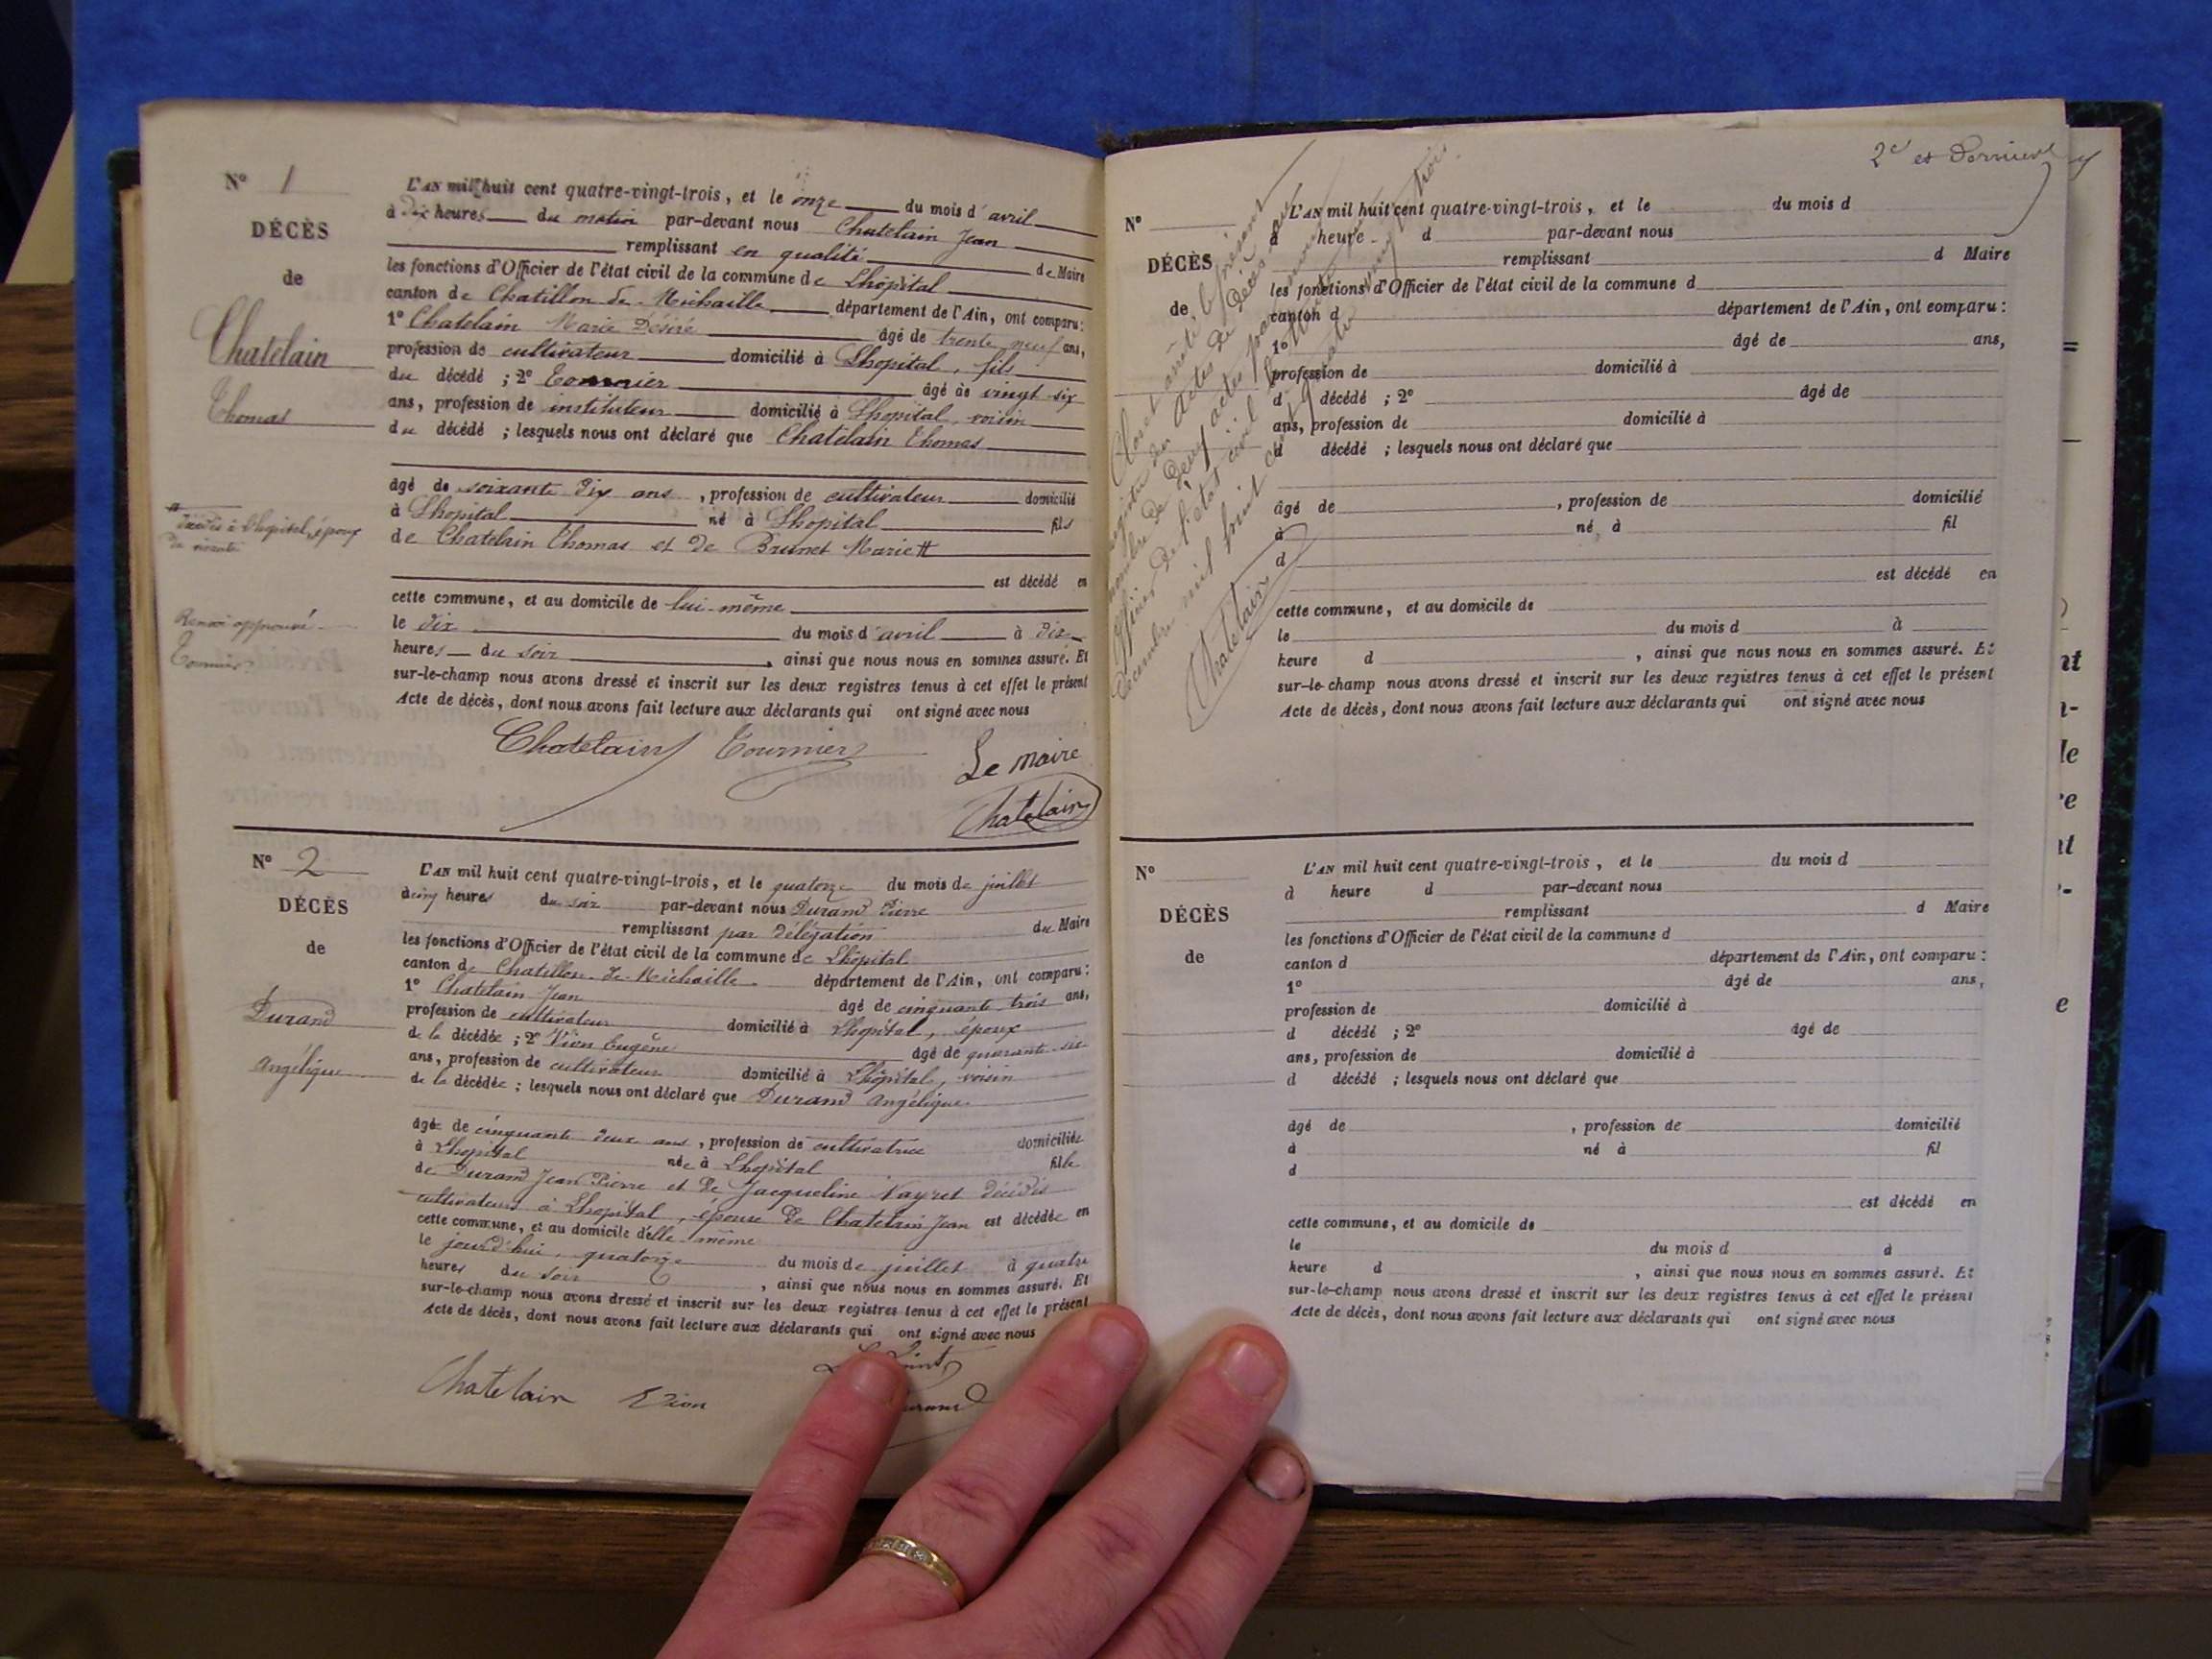 N° 1
DÉCÈS
de
Chatelain
Thomas
décédés à Lhopital, époux
Renvoi approuvé
Tournier
L'AN mil huit cent quatre-vingt-trois, et le onze du mois d'avril
à dix heures du matin par-devant nous Chatelain Jean
remplissant en qualité de Maire
les fonctions d'Officier de l'état civil de la commune de Lhôpital
canton de Chatillon de Michaille département de l'Ain, ont comparu :
1° Chatelain Marie Désiré âgé de trente neuf ans,
profession de cultivateur domicilié à Lhopital, fils
du décédé ; 2° Tournier âgé de vingt six
ans, profession de instituteur domicilié à Lhopital, voisin
du décédé ; lesquels nous ont déclaré que Chatelain Thomas
âgé de soixante dix ans, profession de cultivateur domicilié
à Lhopital né à Lhopital fils
de Chatelain Thomas et de Brunet Marie #
est décédé en
cette commune, et au domicile de lui-même
le dix du mois d'avril à dix
heures du soir, ainsi que nous nous en sommes assuré. Et
sur-le-champ nous avons dressé et inscrit sur les deux registres tenus à cet effet le présent
Acte de décès, dont nous avons fait lecture aux déclarants qui ont signé avec nous
Chatelain Tournier Le Maire
Chatelain
N° 2
DÉCÈS
de
Durand
Angélique
L'AN mil huit cent quatre-vingt-trois, et le quatorze du mois de juillet
à cinq heures du soir par-devant nous Durand Pierre
remplissant par délégation du Maire
les fonctions d'Officier de l'état civil de la commune de Lhôpital
canton de Chatillon de Michaille département de l'Ain, ont comparu :
1° Chatelain Jean âgé de cinquante trois ans,
profession de cultivateur domicilié à Lhopital, époux
de la décédée ; 2° Vion Eugène âgé de quarante six
ans, profession de cultivateur domicilié à Lhôpital, voisin
de la décédée ; lesquels nous ont déclaré que Durand Angélique
âgée de cinquante deux ans, profession de cultivatrice domiciliée
à Lhopital née à Lhopital fille
de Durand Jean Pierre et de Jacqueline Nayret décédés
cultivateurs à Lhopital, épouse de Chatelain Jean est décédée en
cette commune, et au domicile d'elle-même
le jourd'hui, quatorze du mois de juillet à quatre
heures du soir, ainsi que nous nous en sommes assuré. Et
sur-le-champ nous avons dressé et inscrit sur les deux registres tenus à cet effet le présent
Acte de décès, dont nous avons fait lecture aux déclarants qui ont signé avec nous
Chatelain Vion
2e et Dernier
Clos et arrêté le présent
registre des actes de décès au
nombre de deux actes par nous
officier de l'état civil
décembre mil huit cent quatre vingt trois
Chatelain
N°
DÉCÈS
de
L'AN mil huit cent quatre-vingt-trois, et le du mois d
à heure d par-devant nous
remplissant d Maire
les fonctions d'Officier de l'état civil de la commune d
canton d département de l'Ain, ont comparu :
1° âgé de ans,
profession de domicilié à
d décédé ; 2° âgé de
ans, profession de domicilié à
d décédé ; lesquels nous ont déclaré que
âgé de , profession de domicilié
à né à fil
d
est décédé en
cette commune, et au domicile de
le du mois d à
heure d , ainsi que nous nous en sommes assuré. Et
sur-le-champ nous avons dressé et inscrit sur les deux registres tenus à cet effet le présent
Acte de décès, dont nous avons fait lecture aux déclarants qui ont signé avec nous
N°
DÉCÈS
de
L'AN mil huit cent quatre-vingt-trois, et le du mois d
à heure d par-devant nous
remplissant d Maire
les fonctions d'Officier de l'état civil de la commune d
canton d département de l'Ain, ont comparu :
1° âgé de ans,
profession de domicilié à
d décédé ; 2° âgé de
ans, profession de domicilié à
d décédé ; lesquels nous ont déclaré que
âgé de , profession de domicilié
à né à fil
d
est décédé en
cette commune, et au domicile de
le du mois d à
heure d , ainsi que nous nous en sommes assuré. Et
sur-le-champ nous avons dressé et inscrit sur les deux registres tenus à cet effet le présent
Acte de décès, dont nous avons fait lecture aux déclarants qui ont signé avec nous